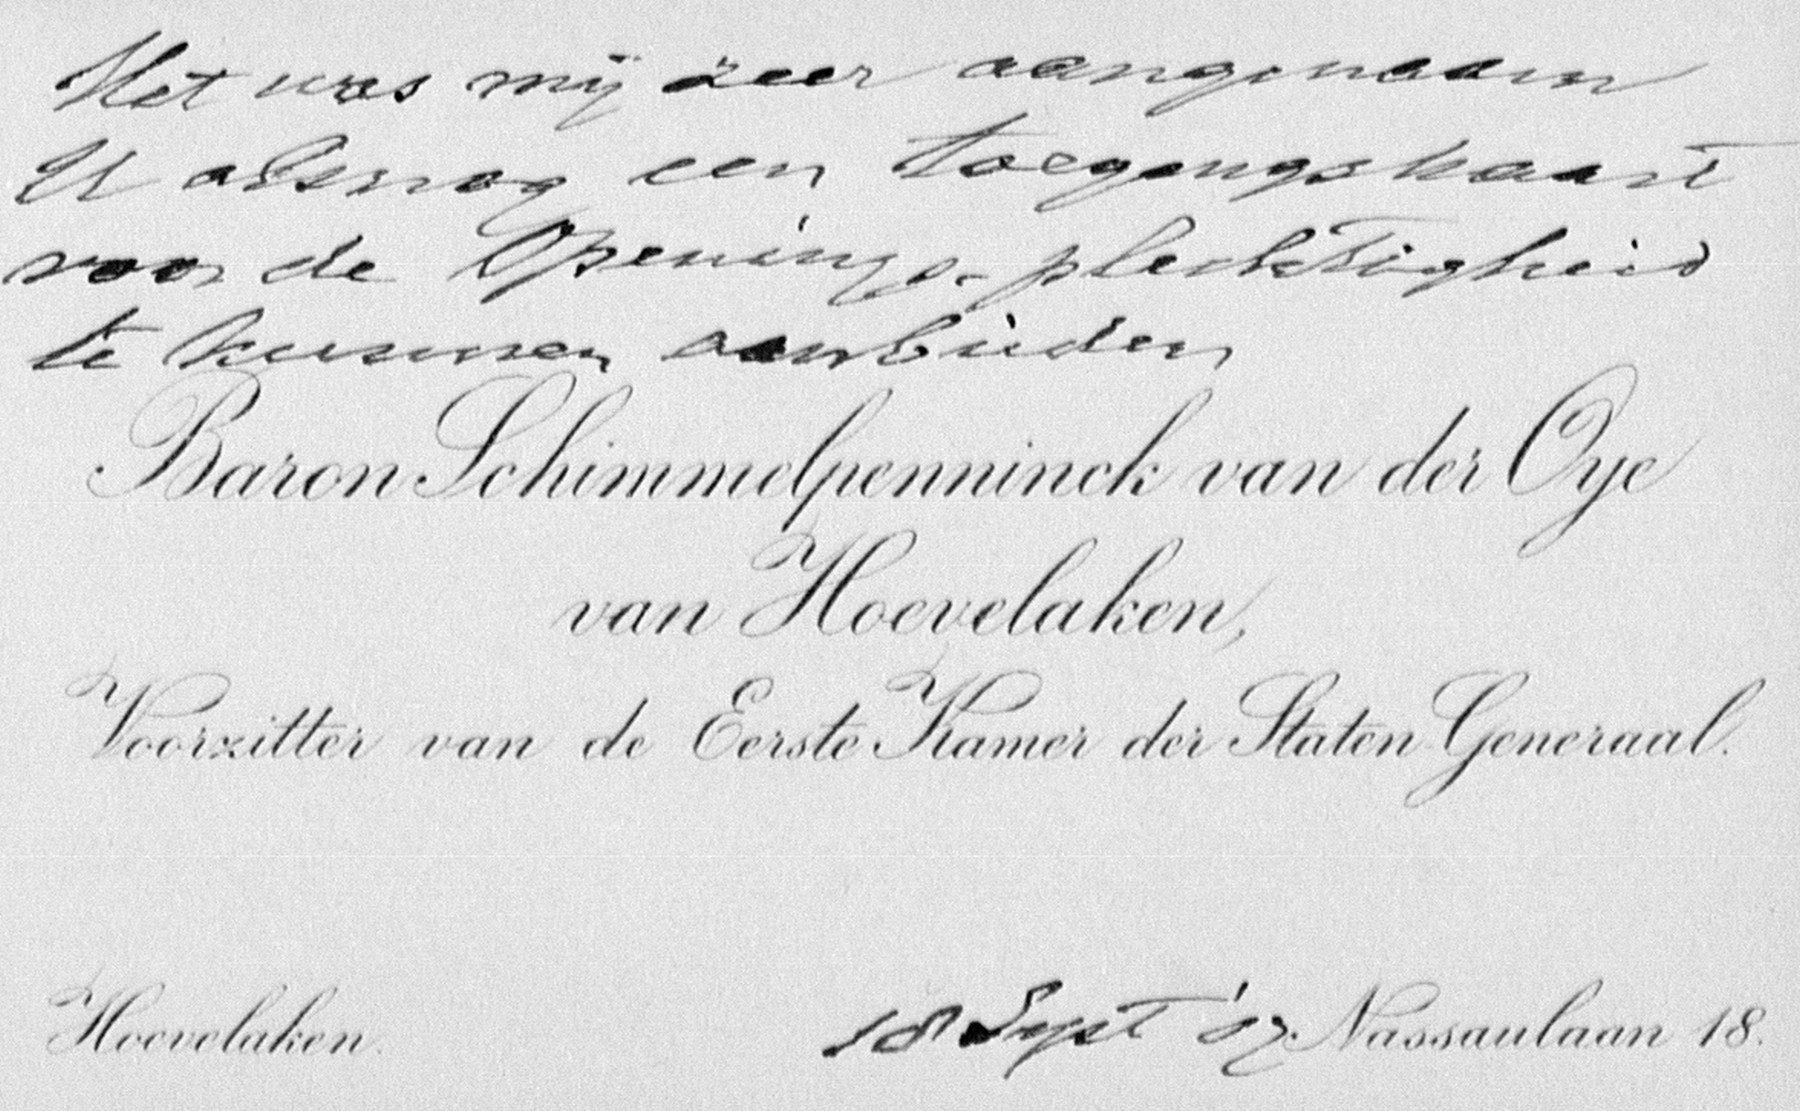 Het was mij zeer aangenaam
U alsnog een toegangskaart
voor de Openings-plechtigheid
te kunnen aanbieden
Baron Schimmelpenninck van der Oye
van Hoevelaken,
Voorzitter van de Eerste Kamer der Staten-Generaal.
Hoevelaken. 18 Sept '07. Nassaulaan 18.